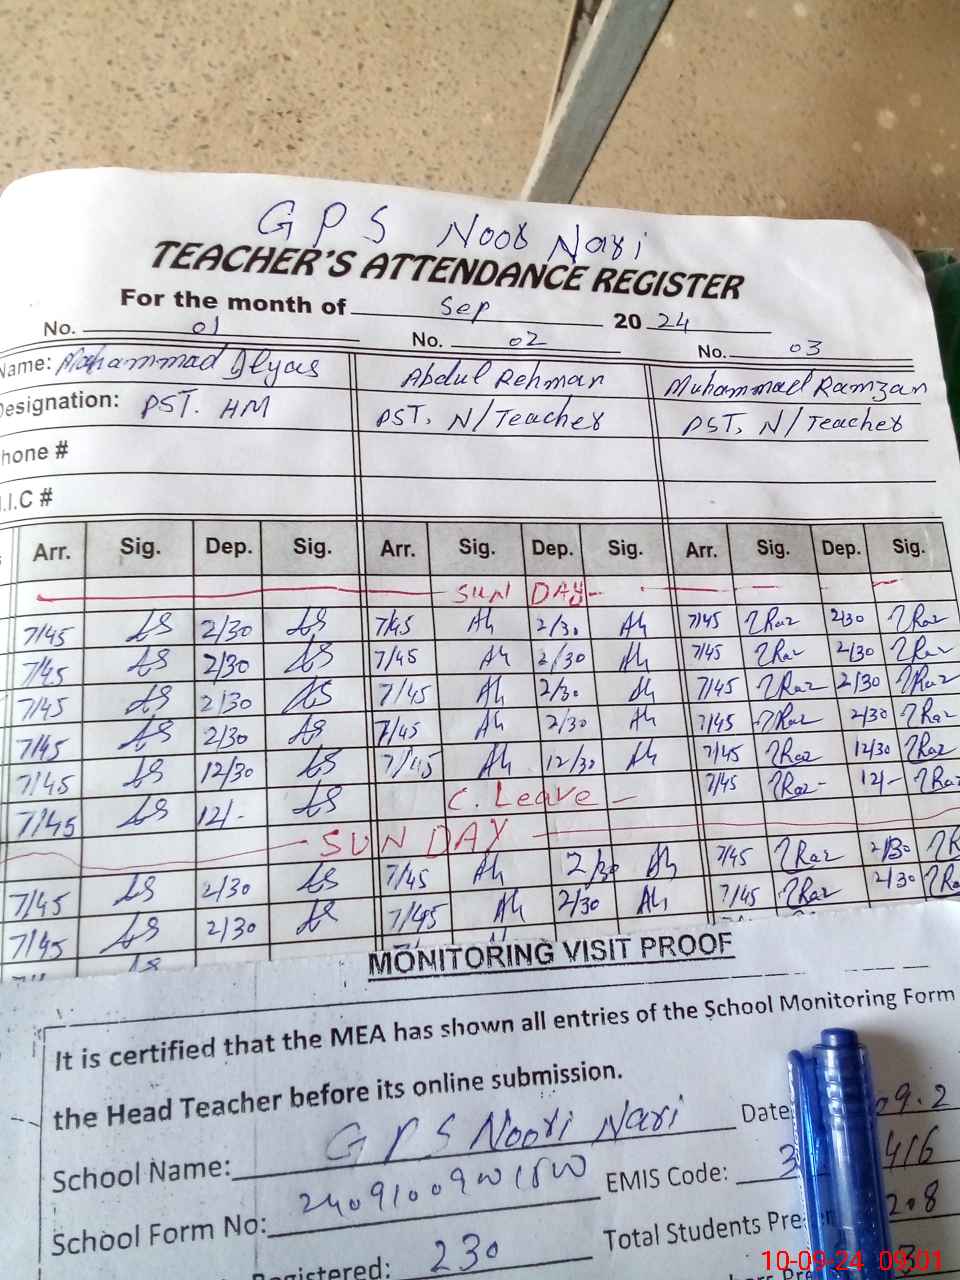 GPS Noor Nari
TEACHER'S ATTENDANCE REGISTER
For the month of Sep 2024
No. 01 No. 02 No. 03
Name: Mohammad Ilyas Abdul Rehman Muhammad Ramzan
Designation: PST. HM PST, N/Teacher PST, N/Teacher
hone #
.I.C #
Arr. Sig. Dep. Sig. Arr. Sig. Dep. Sig. Arr. Sig. Dep. Sig.
SUNDAY
7/45 2/30 7/45 2/30 7/45 2/30
7/45 2/30 7/45 2/30 7/45 2/30
7/45 2/30 7/45 2/30 7/45 2/30
7/45 2/30 7/45 2/30 7/45 2/30
7/45 12/30 7/45 12/30 7/45 12/30
7/45 12/- C. Leave - 7/45 12/-
SUNDAY
7/45 2/30 7/45 2/30 7/45 2/30
7/45 2/30 7/45 2/30 7/45 2/30
MONITORING VISIT PROOF
It is certified that the MEA has shown all entries of the School Monitoring Form
the Head Teacher before its online submission.
School Name: GPS Noori Nari Date: 09.2
School Form No: EMIS Code: 3 416
Registered: 230 Total Students Pre 208
10-09-24 09:01